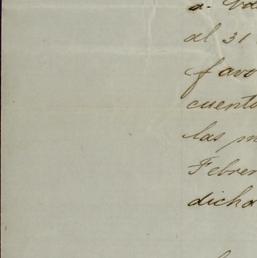 al 31
favo
cuent
las m
Febrer
dicha